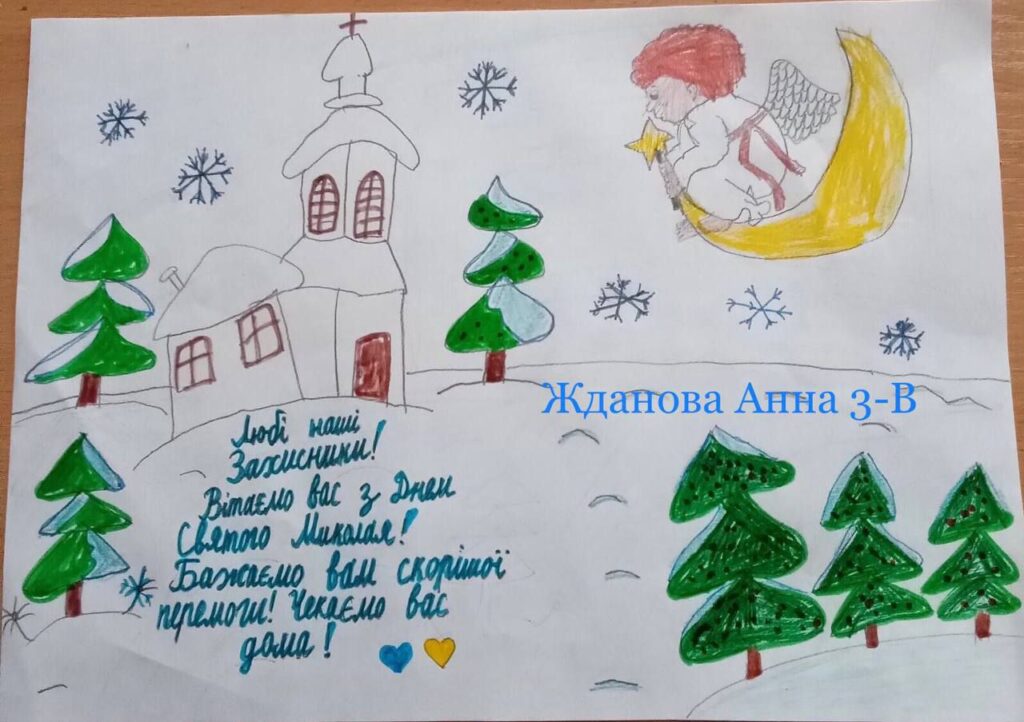 Жданова Анна 3-В
Любі наші
Захисники!
Вітаємо вас з Днем
Святого Миколая!
Бажаємо вам скорішої
перемоги! Чекаємо вас
дома!